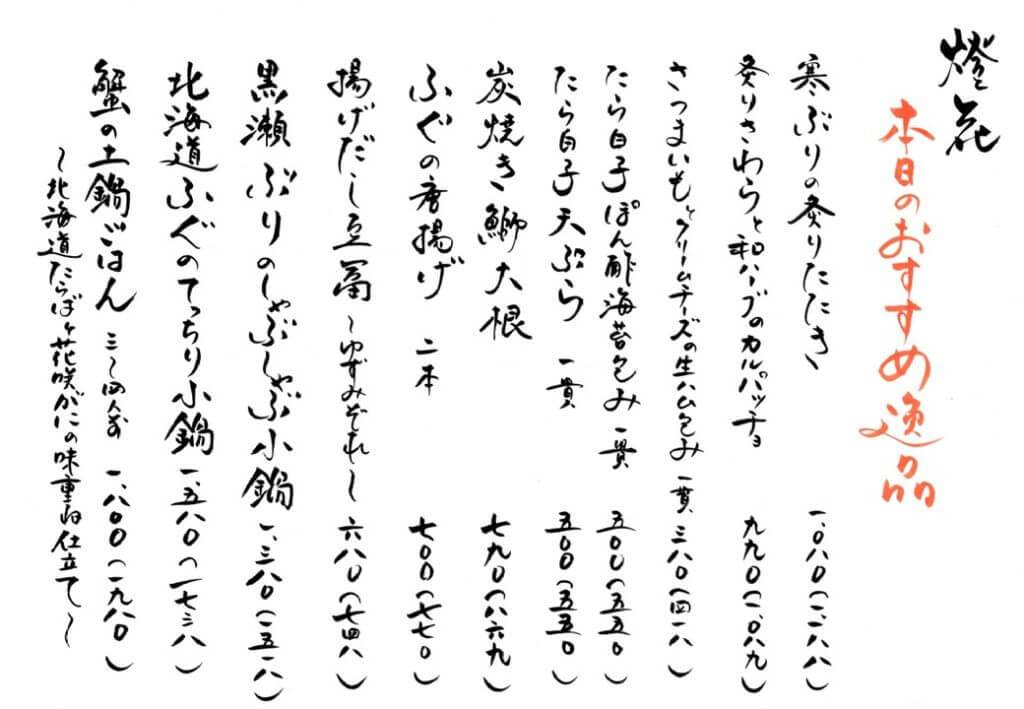 燈花
本日のおすすめ逸品
寒ぶりの炙りたたき 一、〇八〇(一、一八八)
炙りさわらと和ハーブのカルパッチョ 九九〇(一、〇八九)
さつまいもとクリームチーズの生ハム包み 一貫 三八〇(四一八)
たら白子ぽん酢海苔包み 一貫 五〇〇(五五〇)
たら白子天ぷら 一貫 五〇〇(五五〇)
炭焼き鰤大根 七九〇(八六九)
ふぐの唐揚げ 二本 七〇〇(七七〇)
揚げだし豆富〜ゆずみぞれ〜 六八〇(七四八)
黒瀬ぶりのしゃぶしゃぶ小鍋 一、三八〇(一五一八)
北海道ふぐのてっちり小鍋 一、五八〇(一七三八)
蟹の土鍋ごはん 三〜四人前 一、八〇〇(一九八〇)
〜北海道たらばと花咲がにの味重ね仕立て〜